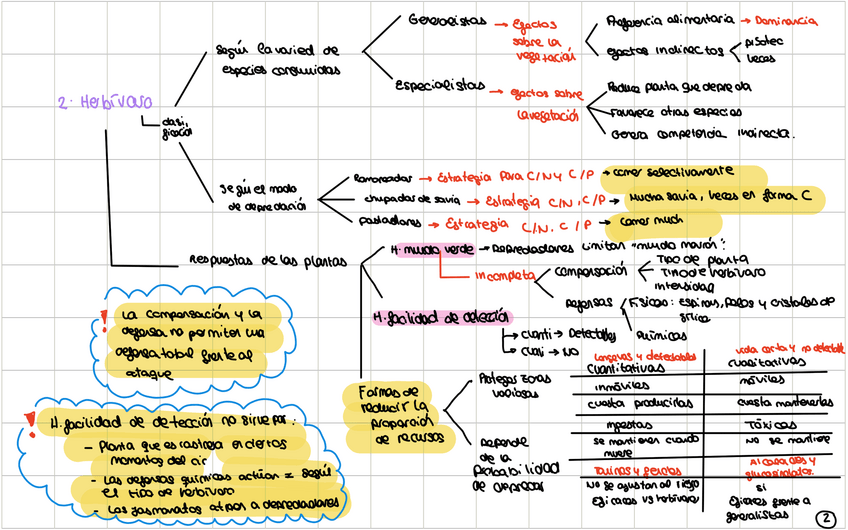 2. Herbívoro
clasi,
ficación
Según la varied de
especies consumidas
Generalistas → Efectos
sobre la
vegetación
Preferencia alimentaria → Dominancia
efectos indirectos
pisoteo
heces
Especialistas → efectos sobre
la vegetación
Reduce planta que depreda
Favorece otras especies
Genera competencia indirecta.
Según el modo
de depredación
Ramoneador → Estrategia para C/N y C/P → comer selectivamente
chupador de savia → Estrategia C/N, C/P → mucha savia, heces en forma C
pastadores → Estrategia C/N, C/P → comer much
Respuestas de las plantas
H. mundo verde → Depredadores limitan "mundo marrón"
incompleta
compensación
Tipo de planta
Tipo de herbívoro
intensidad
Defensas
Físicas: Espinas, pelos y cristales de
sílice
Químicas
H. facilidad de detección
cuanti → Detectables
cuali → NO
! La compensación y la
defensa no permiten una
defensa total frente al
ataque
! H. facilidad de detección no sirve por:
- Planta que es rastrea en ciertos
momentos del air
- Las defensas químicas actúan = según
el tipo de herbívoro
- Los jasmonatos atraen a depredadores
Formas de
reducir la
proporción
de recursos
Proteger zonas
valiosas
Depende
de la
probabilidad
de aparecer
longevas y detectables
vida corta y no detectable
Cuantitativas
cualitativas
inmóviles
móviles
cuesta producirlas
cuesta mantenerlas
impestas
Tóxicas
se mantienen cuando
muere
NO se mantiene
Taninos y fenoles
Alcaloides y
glucosinolatos
NO se ajustan al riesgo
SI
Eficaces vs herbívoro
Eficaces frente a
generalistas
2